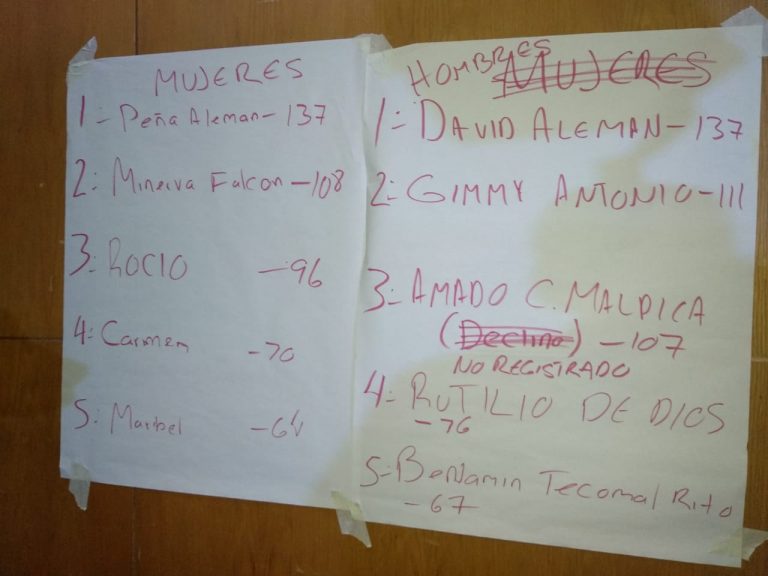 MUJERES
1- Peña Aleman- 137
2: Minerva Falcon -108
3: ROCIO -96
4: Carmen -70
5: Maribel -64
HOMBRES MUJERES
1- DAVID ALEMAN- 137
2: GIMMY ANTONIO-111
3- AMADO C. MALDICA
(Declino) -107
NO REGISTRADO
4: RUTILIO DE DIOS
-76
5- BenJamin Tecomal Rito
-67